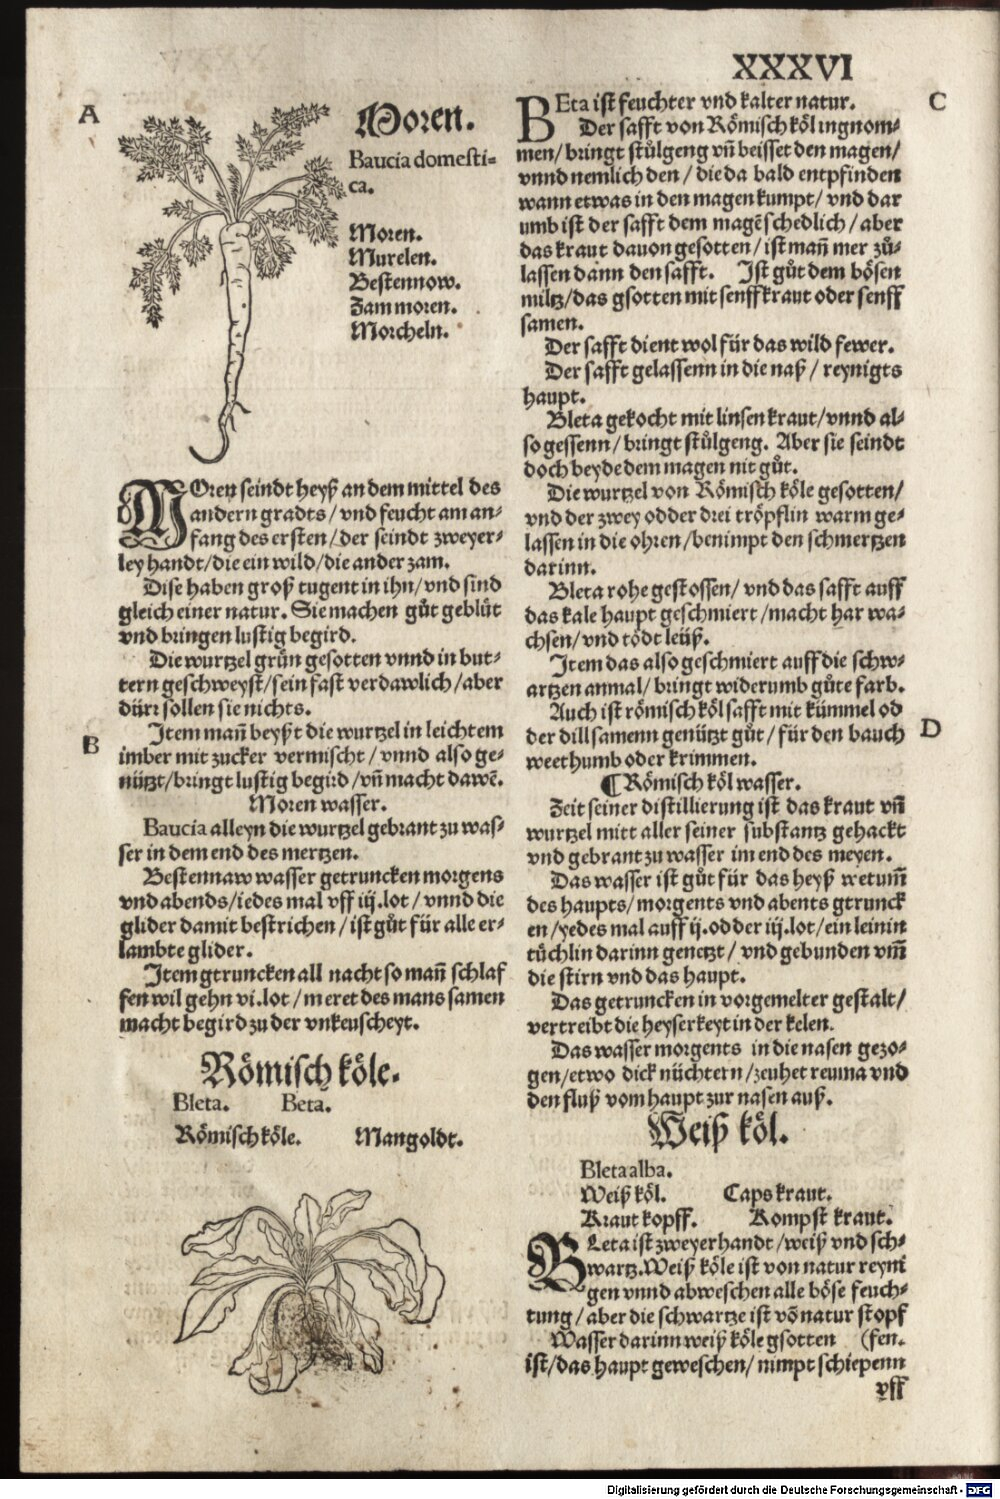 XXXVI
A
Moren.
Baucia domesti=
ca.
Moren.
Murelen.
Bestennow.
Zam moren.
Morcheln.
MOren seindt heyß an dem mittel des
andern gradts / vnd feucht am an=
fang des ersten / der seindt zweyer=
ley handt / die ein wild / die ander zam.
Dise haben groß tugent in ihn / vnd sind
gleich einer natur. Sie machen gůt geblůt
vnd bringen lustig begird.
Die wurtzel grůn gesotten vnnd in but=
tern geschweyst / sein fast verdawlich / aber
dürr sollen sie nichts.
B
Item mañ beyßt die wurtzel in leichtem
imber mit zucker vermischt / vnnd also ge=
nützt / bringt lustig begird / vñ macht dawē.
Moren wasser.
Baucia alleyn die wurtzel gebrant zu was=
ser in dem end des mertzen.
Bestennaw wasser getruncken morgens
vnd abends / iedes mal vff iij. lot / vnnd die
glider damit bestrichen / ist gůt für alle er=
lambte glider.
Item gtruncken all nacht so mañ schlaf
fen wil gehn vi. lot / meret des mans samen
macht begird zu der vnkeuscheyt.
Römisch köle.
Bleta. Beta.
Römisch köle. Mangoldt.
C
BEta ist feuchter vnd kalter natur.
Der safft von Römisch köl ingnom=
men / bringt stůlgeng vñ beisset den magen /
vnnd nemlich den / die da bald entpfinden
wann etwas in den magen kumpt / vnd dar
umb ist der safft dem magē schedlich / aber
das kraut dauon gesotten / ist mañ mer zů=
lassen dann den safft. Ist gůt dem bösen
miltz / das gsotten mit senffkraut oder senff
samen.
Der safft dient wol für das wild fewer.
Der safft gelassenn in die naß / reynigts
haupt.
Bleta gekocht mit linsen kraut / vnnd al=
so gessenn / bringt stůlgeng. Aber sie seindt
doch beyde dem magen nit gůt.
Die wurtzel von Römisch köle gesotten /
vnd der zwey odder drei tröpflin warm ge=
lassen in die ohren / benimpt den schmertzen
darinn.
Bleta rohe gestossen / vnd das safft auff
das kale haupt geschmiert / macht har wa=
chsen / vnd tödt leüß.
Item das also geschmiert auff die schw=
artzen anmal / bringt widerumb gůte farb.
D
Auch ist römisch köl safft mit kümmel od
der dill samenn genützt gůt / für den bauch
weethumb oder krimmen.
¶ Römisch köl wasser.
Zeit seiner distillierung ist das kraut vñ
wurtzel mitt aller seiner substantz gehackt
vnd gebrant zu wasser im end des meyen.
Das wasser ist gůt für das heyß wetum̃
des haupts / morgents vnd abents gtrunck
en / yedes mal auff ij. odder iij. lot / ein leinin
tüchlin darinn genetzt / vnd gebunden vm̃
die stirn vnd das haupt.
Das getruncken in vorgemelter gestalt /
vertreibt die heyserkeyt in der kelen.
Das wasser morgents in die nasen gezo=
gen / etwo dick nüchtern / zeuhet reuma vnd
den fluß vom haupt zur nasen auß.
Weiß köl.
Bleta alba.
Weiß köl. Caps kraut.
Kraut kopff. Kompst kraut.
BLeta ist zweyer handt / weiß vnd sch=
wartz. Weiß köle ist von natur reyni
gen vnnd abweschen alle böse feuch=
tung / aber die schwartze ist vō natur stopf
Wasser darinn weiß köle gsotten (fen.
ist / das haupt geweschen / nimpt schiepenn
vff
Digitalisierung gefördert durch die Deutsche Forschungsgemeinschaft - DFG